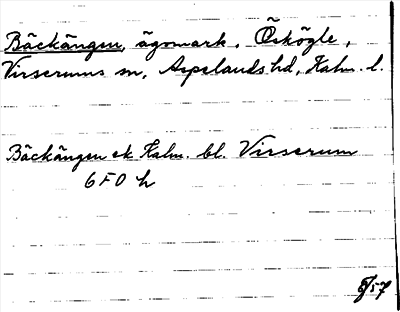 Bäckängen, ägomark, Öskögle,
Virserums sn, Aspelands hd, Kalm. l.
Bäckängen ek Kalm. bl. Virserum
6F0 h
8/57